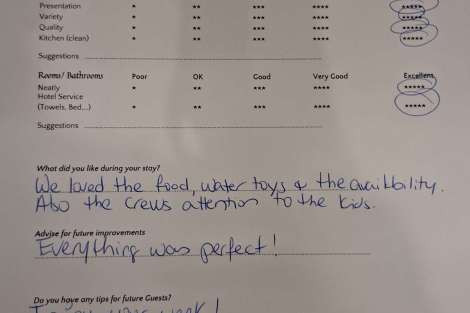 Presentation * ** *** **** *****
Variety * ** *** **** *****
Quality * ** *** **** *****
Kitchen (clean) * ** *** **** *****
Suggestions
Rooms/ Bathrooms Poor OK Good Very Good Excellent
Neatly * ** *** **** *****
Hotel Service
(Towels, Bed...) * ** *** **** *****
Suggestions
What did you like during your stay?
We loved the food, water toys & the availbility.
Also the crews attention to the kids.
Advise for future improvements
Everything was perfect!
Do you have any tips for future Guests?